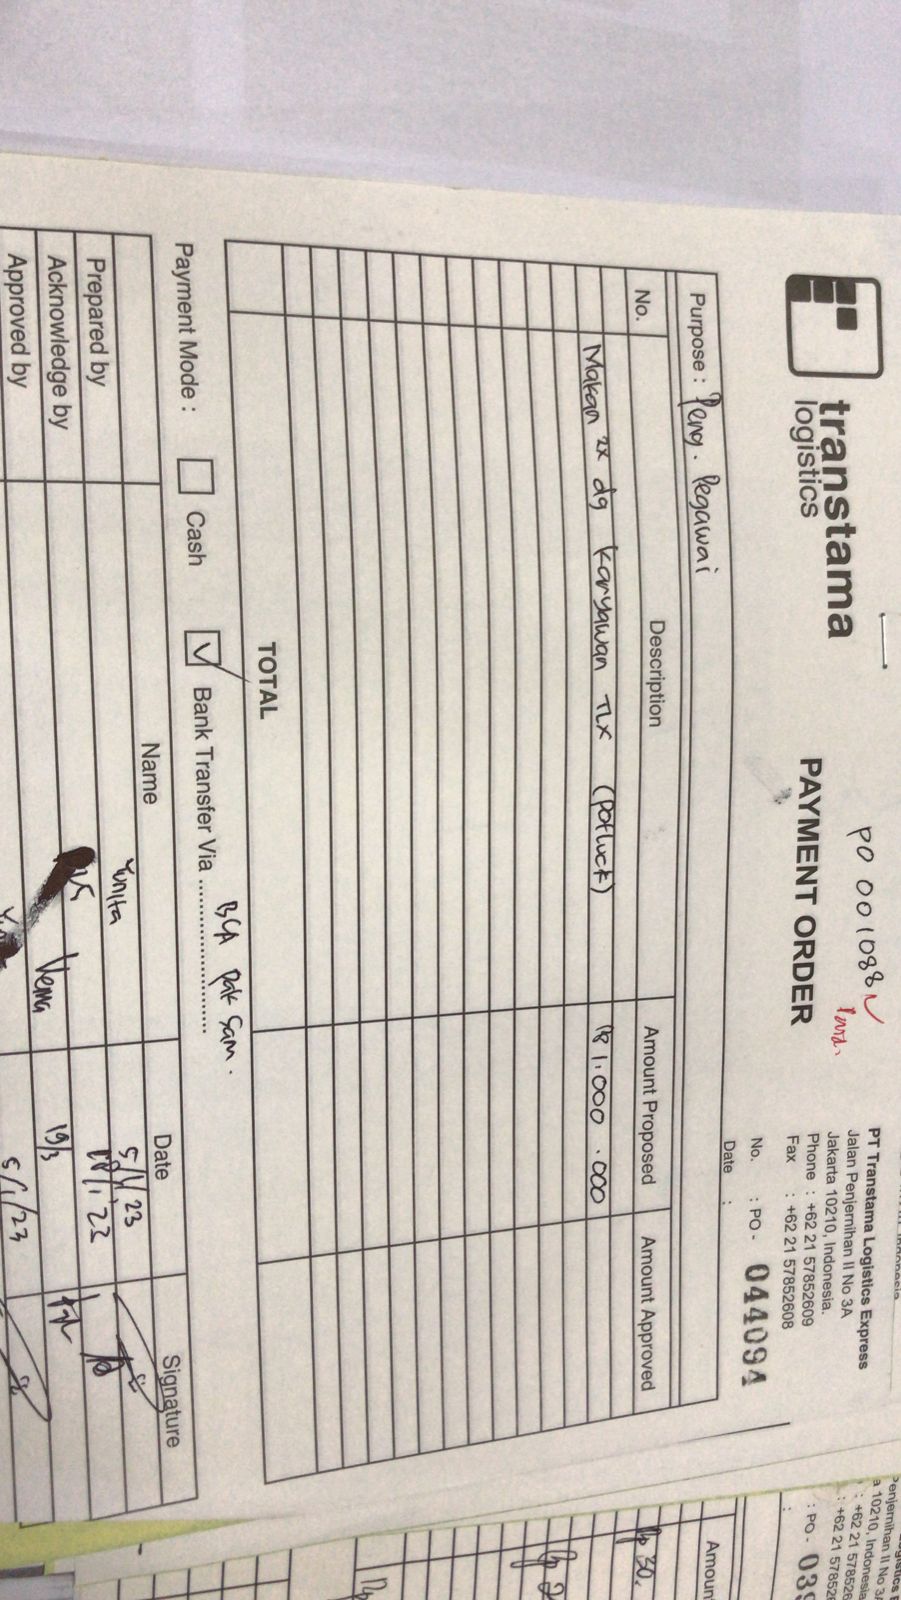 PO 001088
transtama
logistics
PAYMENT ORDER
PT Transtama Logistics Express
Jalan Penjernihan II No 3A
Jakarta 10210, Indonesia.
Phone : +62 21 57852609
Fax : +62 21 57852608
No. : PO - 044094
Date :
Purpose : Peng. Pegawai
No. Description Amount Proposed Amount Approved
Makan 2x dg Karyawan TLX (potluck) Rp 1.000.000
TOTAL
Payment Mode : Cash Bank Transfer Via BCA Pak Sam.
Name Date Signature
Prepared by Yunita 5/1/23
Acknowledge by 19/3
Approved by 5/1/23
Penjernihan II
a 10210, Indonesia
: PO - 039
Amoun
Rp 30.